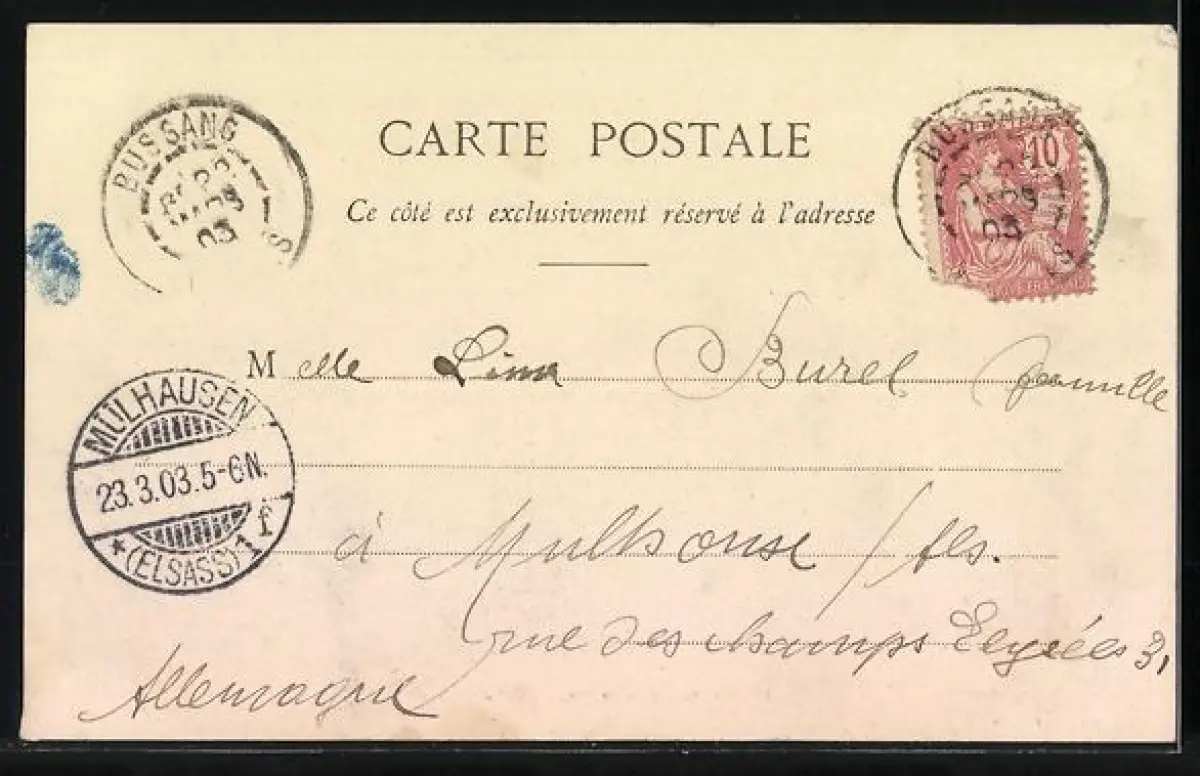 CARTE POSTALE
Ce côté est exclusivement réservé à l'adresse
BUSSANG
03
S
BUSSANG
10
03
S
Melle Lina Burel famille
MÜLHAUSEN
23.3.03.5-6N.
* (ELSASS) 1 f
à Mulhouse / Als.
rue des champs Elysées 31
Allemagne